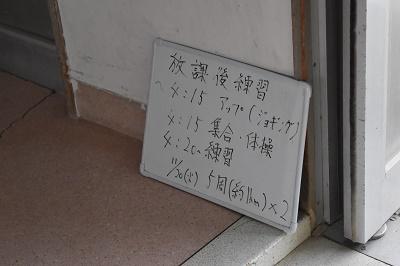 放課後練習
〜4:15 アップ(ジョギング)
4:15 集合・体操
4:20 練習
11/30(火) 5周(約1km)×2